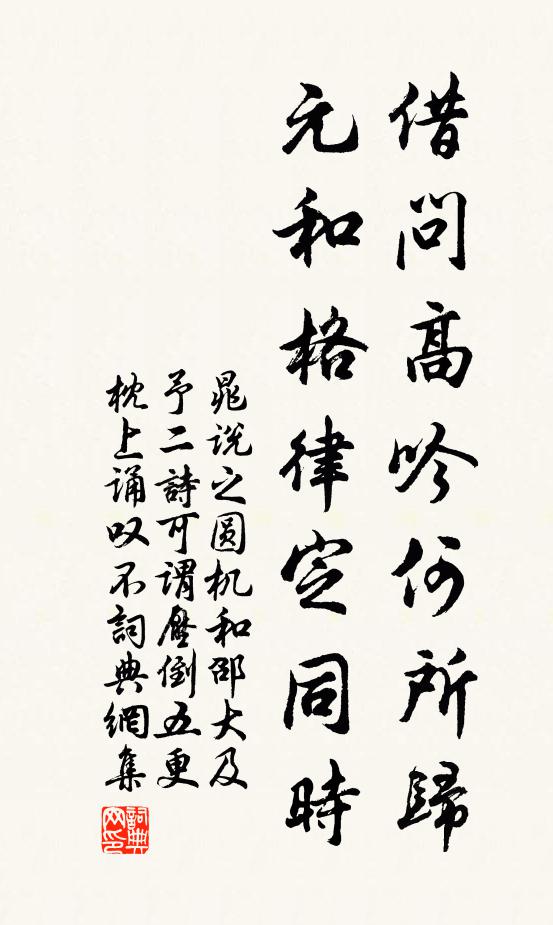 借問高吟何所歸
元和格律定同時
晁說之圆机和邵大及
予二詩可謂壓倒五更
枕上诵叹不詞典網集
詞典网印